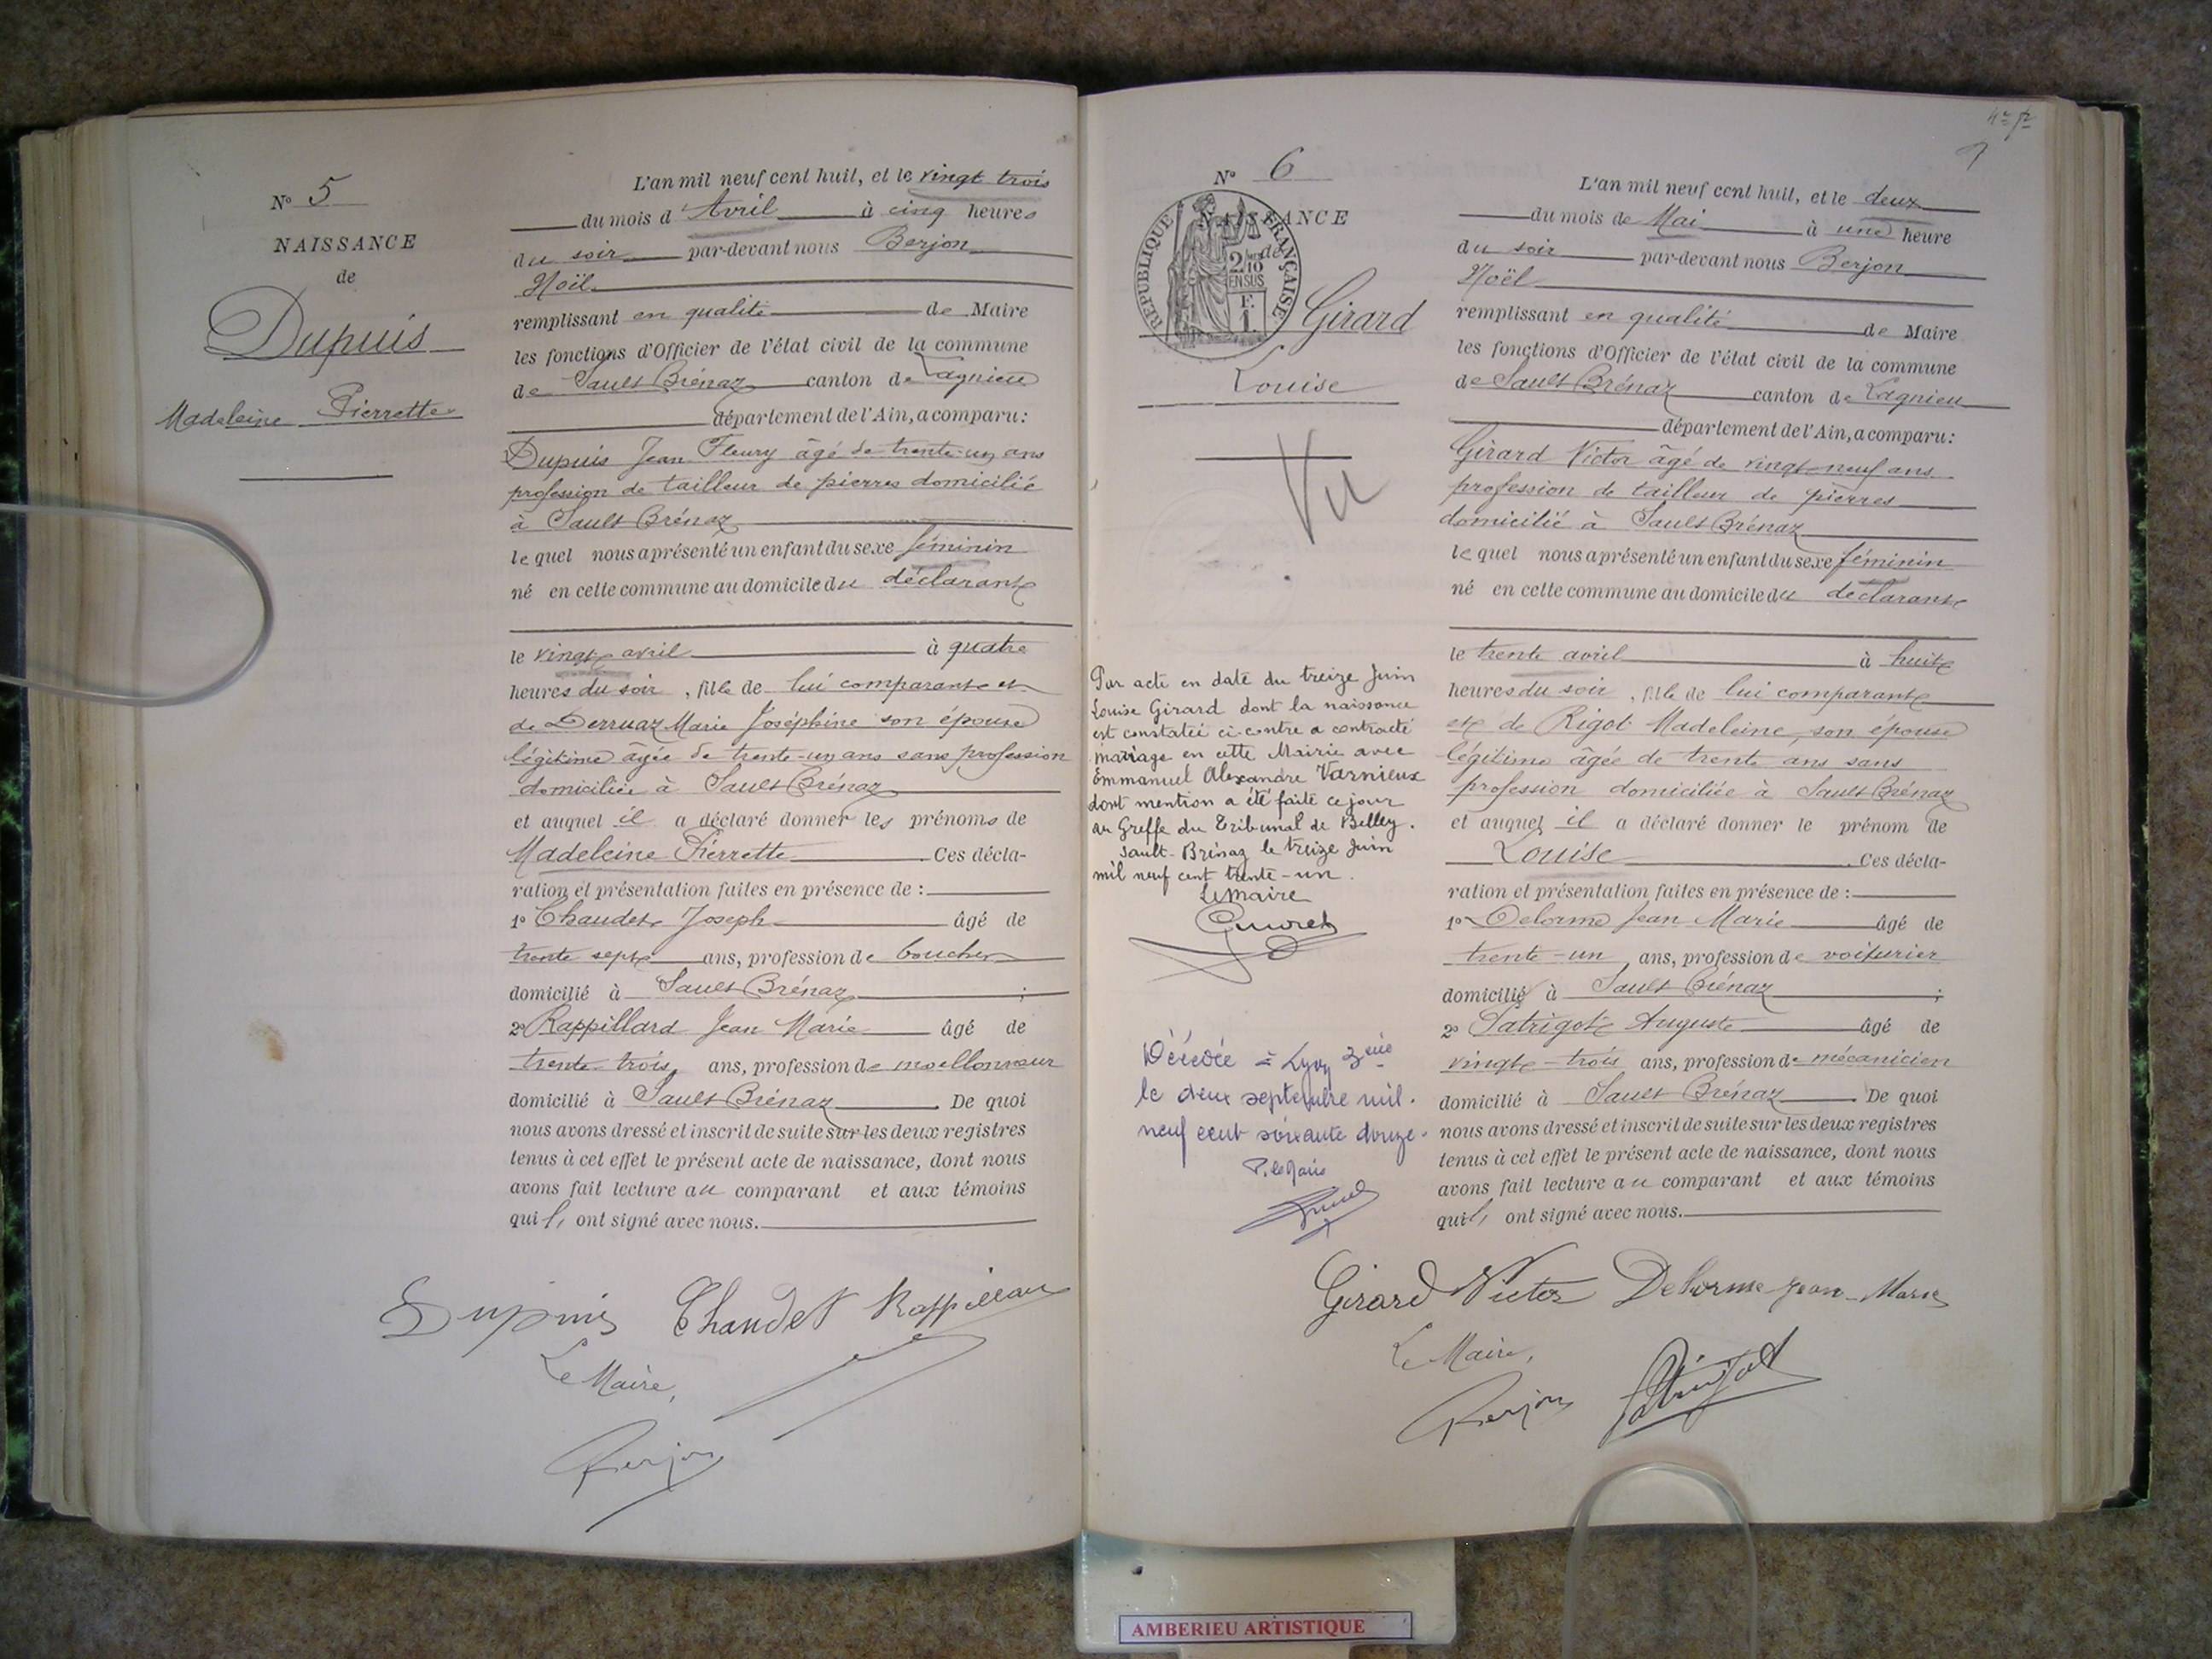 N° 5
NAISSANCE
de
Dupuis
Madeleine Pierrette
L'an mil neuf cent huit, et le vingt trois
du mois d'Avril à cinq heures
du soir par-devant nous Berjon
Noël
remplissant en qualité de Maire
les fonctions d'Officier de l'état civil de la commune
de Sault Brénaz canton de Lagnieu
département de l'Ain, a comparu:
Dupuis Jean Fleury âgé de trente-un ans
profession de tailleur de pierres domicilié
à Sault Brénaz
lequel nous a présenté un enfant du sexe féminin
né en cette commune au domicile du déclarant
le vingt avril à quatre
heures du soir, fille de lui comparant et
de Derruaz Marie Joséphine son épouse
légitime âgée de trente-un ans sans profession
domiciliée à Sault Brénaz
et auquel il a déclaré donner les prénoms de
Madeleine Pierrette. Ces décla-
ration et présentation faites en présence de:
1° Chaudet Joseph âgé de
trente sept ans, profession de boucher
domicilié à Sault Brénaz;
2° Rappillard Jean Marie âgé de
trente-trois ans, profession de moellonneur
domicilié à Sault Brénaz. De quoi
nous avons dressé et inscrit de suite sur les deux registres
tenus à cet effet le présent acte de naissance, dont nous
avons fait lecture au comparant et aux témoins
qui l, ont signé avec nous.
Dupuis Chaudet Rappillard
Le Maire,
Berjon
N° 6
NAISSANCE
de
REPUBLIQUE FRANÇAISE
2/10 EN SUS
F.
1.
Girard
Louise
Vu
Par acte en date du treize Juin
Louise Girard dont la naissance
est constatée ci-contre a contracté
mariage en cette Mairie avec
Emmanuel Alexandre Varnieux
dont mention a été faite ce jour
au Greffe du Tribunal de Belley.
Sault-Brénaz le treize Juin
mil neuf cent trente-un.
Le Maire
Décédée à Lyon 3eme
le deux septembre mil
neuf cent soixante douze.
P. le Maire
L'an mil neuf cent huit, et le deux
du mois de Mai à une heure
du soir par-devant nous Berjon
Noël
remplissant en qualité de Maire
les fonctions d'Officier de l'état civil de la commune
de Sault Brénaz canton de Lagnieu
département de l'Ain, a comparu:
Girard Victor âgé de vingt-neuf ans
profession de tailleur de pierres
domicilié à Sault Brénaz
lequel nous a présenté un enfant du sexe féminin
né en cette commune au domicile du déclarant
le trente avril à huit
heures du soir, fille de lui comparant
et de Rigot Madeleine, son épouse
légitime âgée de trente ans sans
profession domiciliée à Sault Brénaz
et auquel il a déclaré donner le prénom de
Louise. Ces décla-
ration et présentation faites en présence de:
1° Delorme Jean Marie âgé de
trente-un ans, profession de voiturier
domicilié à Sault Brénaz;
2° Satrigot Auguste âgé de
vingt-trois ans, profession de mécanicien
domicilié à Sault Brénaz. De quoi
nous avons dressé et inscrit de suite sur les deux registres
tenus à cet effet le présent acte de naissance, dont nous
avons fait lecture au comparant et aux témoins
qui l, ont signé avec nous.
Girard Victor Delorme Jean-Marie
Le Maire,
Berjon Satrigot
AMBERIEU ARTISTIQUE